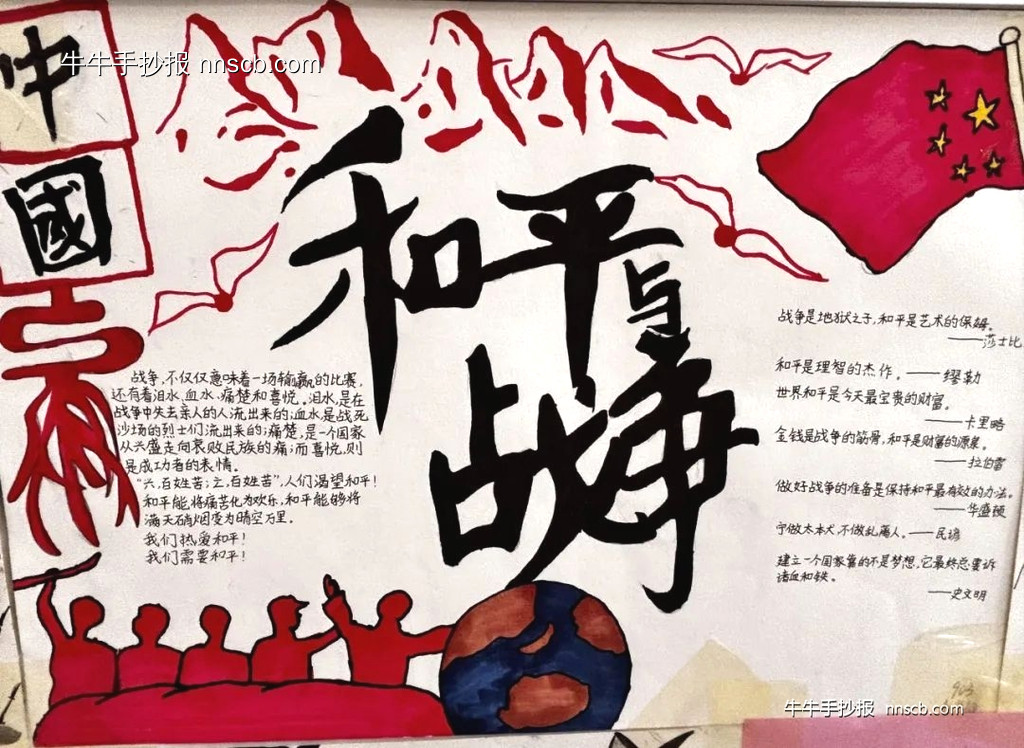 中
國
牛牛手抄报 nnscb.com
和平
与
战争
战争,不仅仅意味着一场输赢的比赛,
还有着泪水、血水、痛楚和喜悦。泪水,是在
战争中失去亲人的人流出来的;血水,是战死
沙场的烈士们流出来的;痛楚,是一个国家
从兴盛走向衰败民族的痛;而喜悦,则
是成功者的表情。
百姓苦;亡,百姓苦",人们渴望和平!
和平能将痛苦化为欢乐,和平能够将
满天硝烟变为晴空万里。
我们热爱和平!
我们需要和平!
战争是地狱之子,和平是艺术的保姆。
——莎士比
和平是理智的杰作。——缪勒
世界和平是今天最宝贵的财富。
——卡里略
金钱是战争的筋骨,和平是财富的源泉。
——拉伯雷
做好战争的准备是保持和平最有效的办法。
——华盛顿
宁做太平犬,不做乱离人。——民谚
建立一个国家靠的不是梦想,它最终总要诉
诸血和铁。
——史文明
牛牛手抄报 nnscb.com